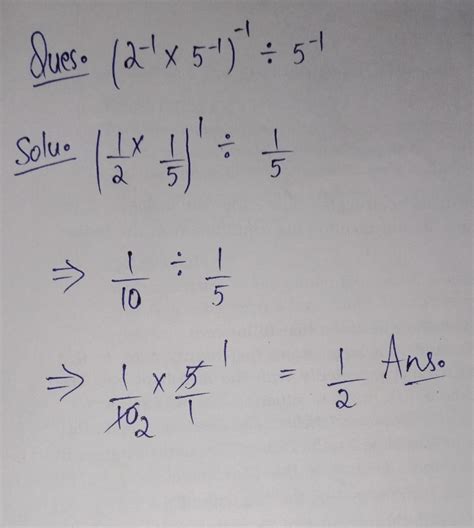 Ques. (2⁻¹ × 5⁻¹)⁻¹ ÷ 5⁻¹
Solu. (1/2 × 1/5)¹ ÷ 1/5
⇒ 1/10 ÷ 1/5
⇒ 1/10 2 × 5/1 1 = 1/2 Ans.